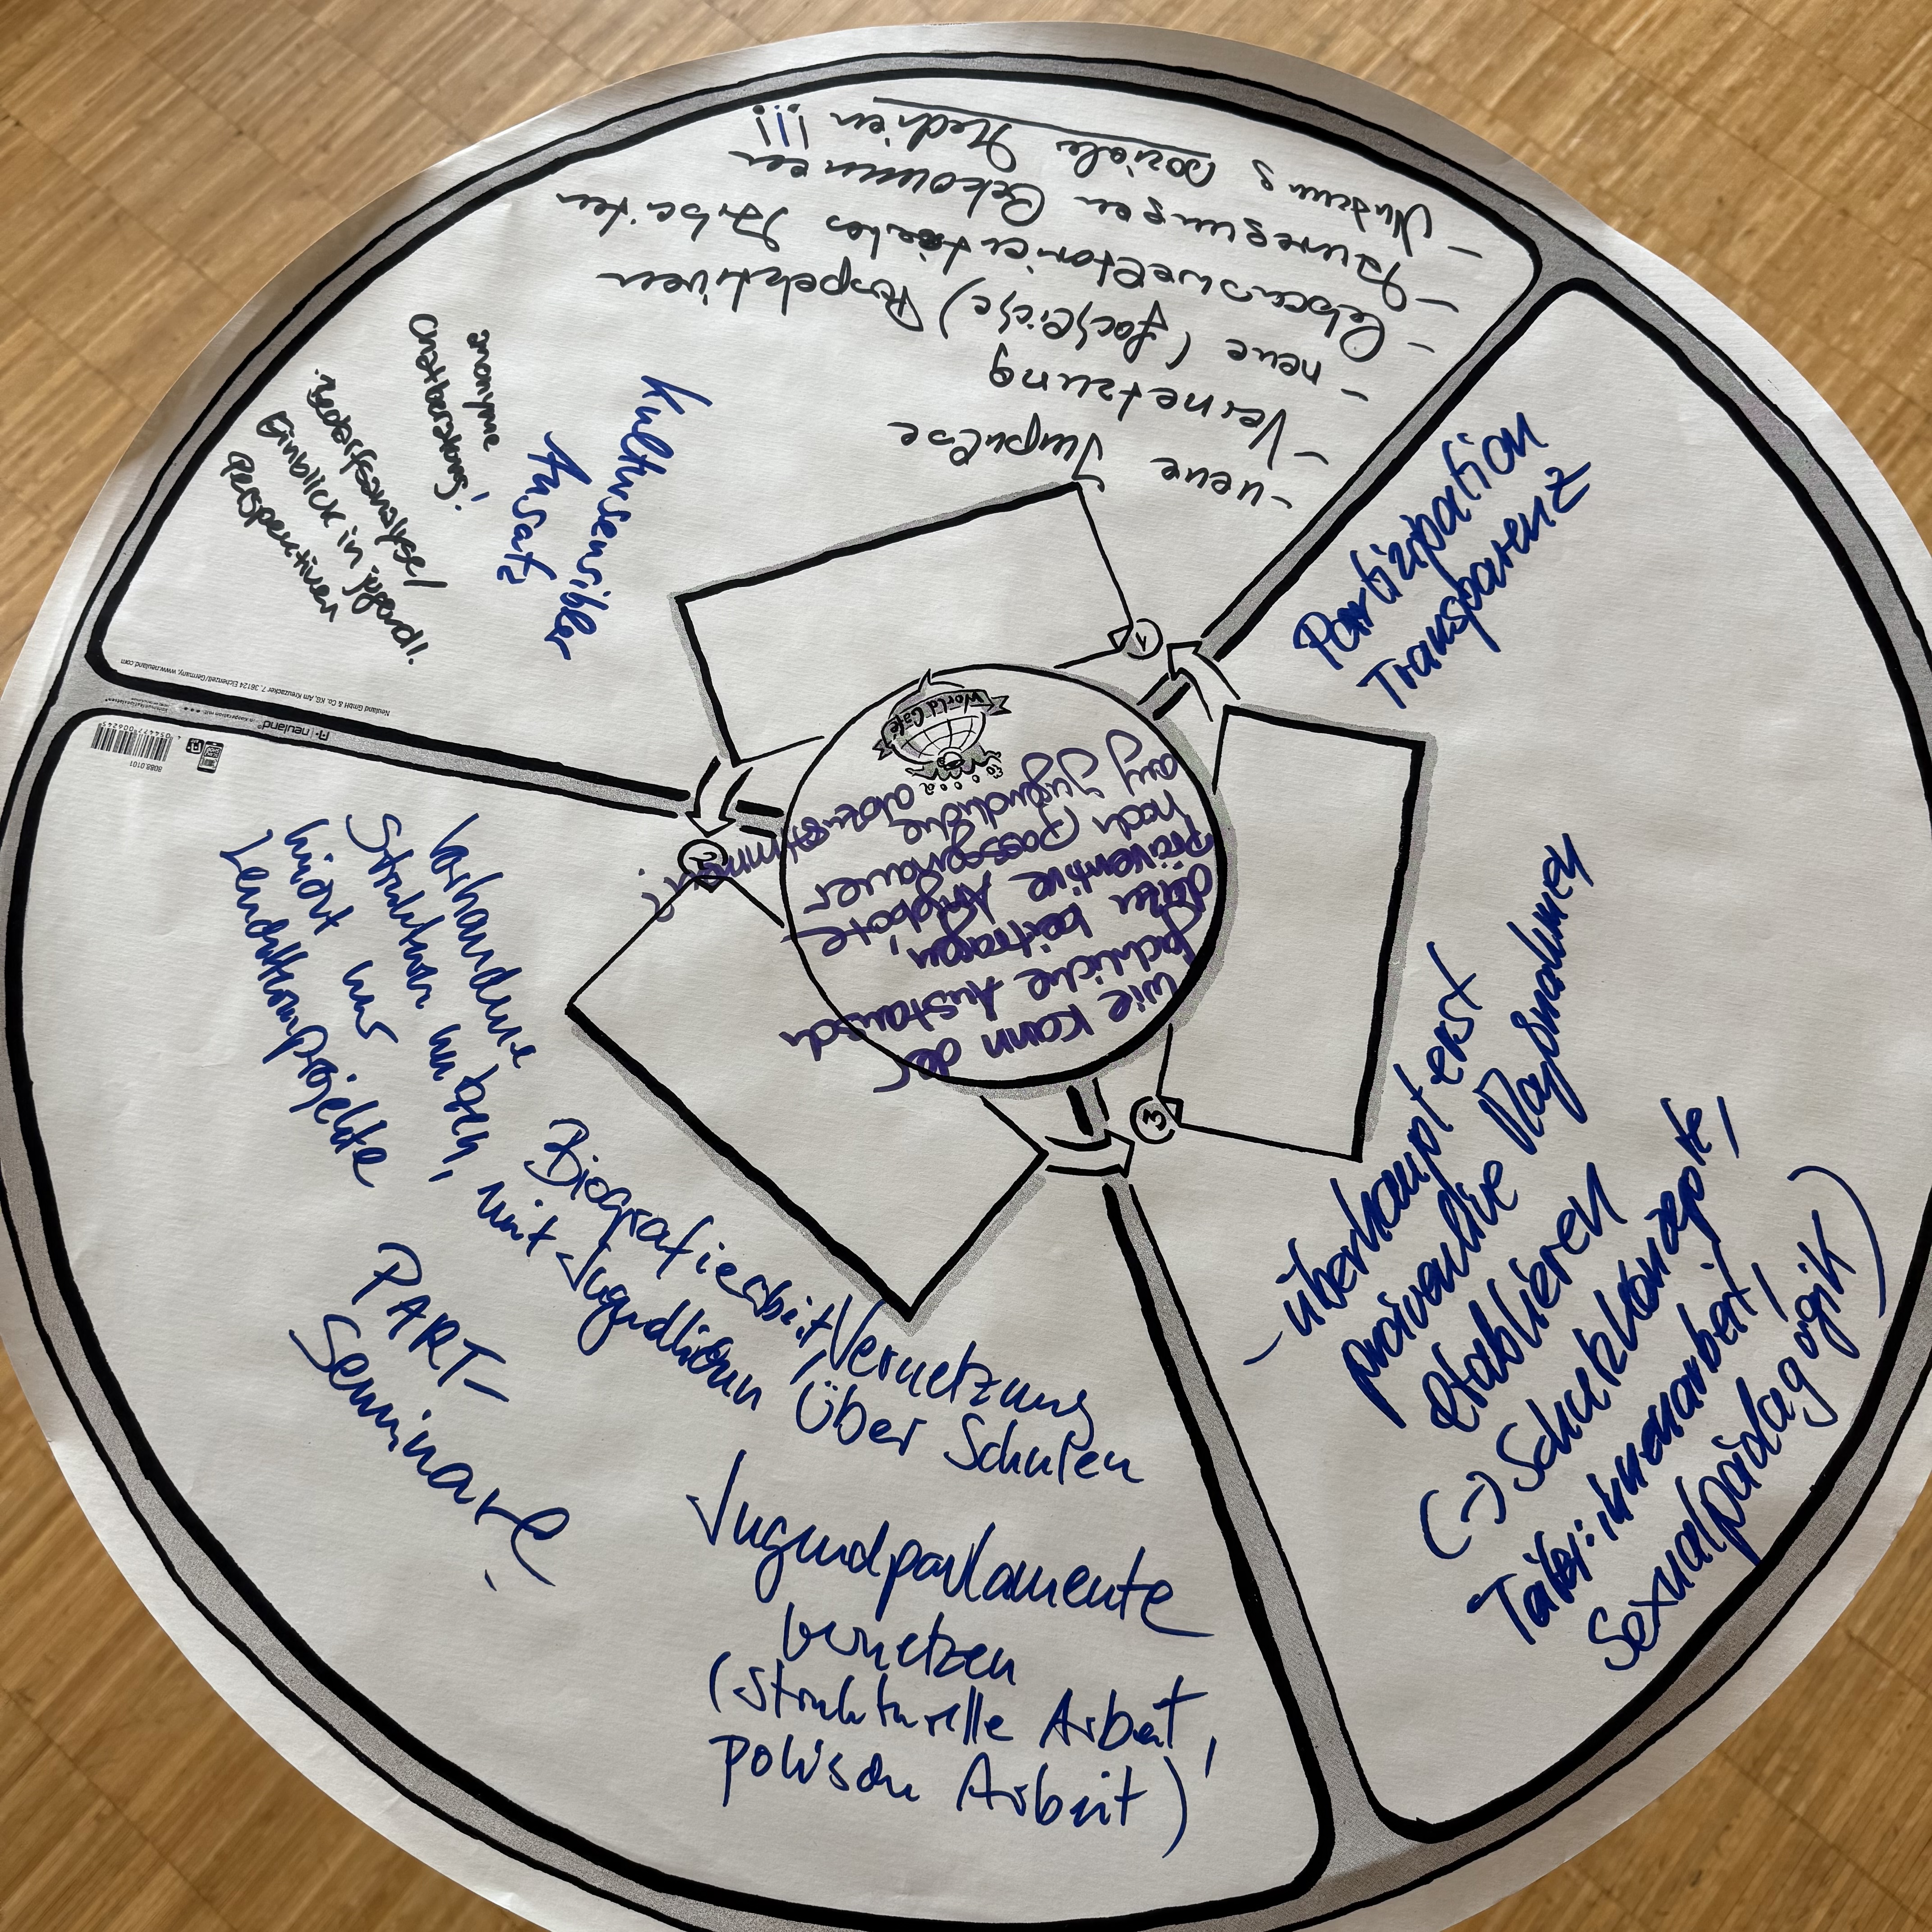 Wie kann der
fachliche Austausch
dazu beitragen,
präventive Angebote
noch passgenauer
auf Jugendliche abzustimmen?
World Café
1
- neue Impulse
- Vernetzung
- neue (fachliche) Perspektiven
- Lebensweltorientiertes Arbeiten
- Anregungen bekommen
- Nutzung soziale Medien !!!
Kultursensibler
Ansatz
anonyme
Onlineberatung!
Bedarfsanalyse/
Einblick in jugendl.
Perspektiven
Neuland GmbH & Co. KG, Am Kreuzacker 7, 36124 Eichenzell/Germany, www.neuland.com
neuland
8088.0101
2
Vorhandene
Strukturen nutzen,
nicht nur
Leuchtturmprojekte
Biografiearbeit,
mit Jugendlichen
Vernetzung
über Schulen
PART-
Seminare
Jugendparlamente
vernetzen
(strukturelle Arbeit,
polische Arbeit)
3
Partizipation
Transparenz
- überhaupt erst
präventive Maßnahmen
etablieren
(→ Schutzkonzepte,
Täter:innenarbeit,
Sexualpädagogik)